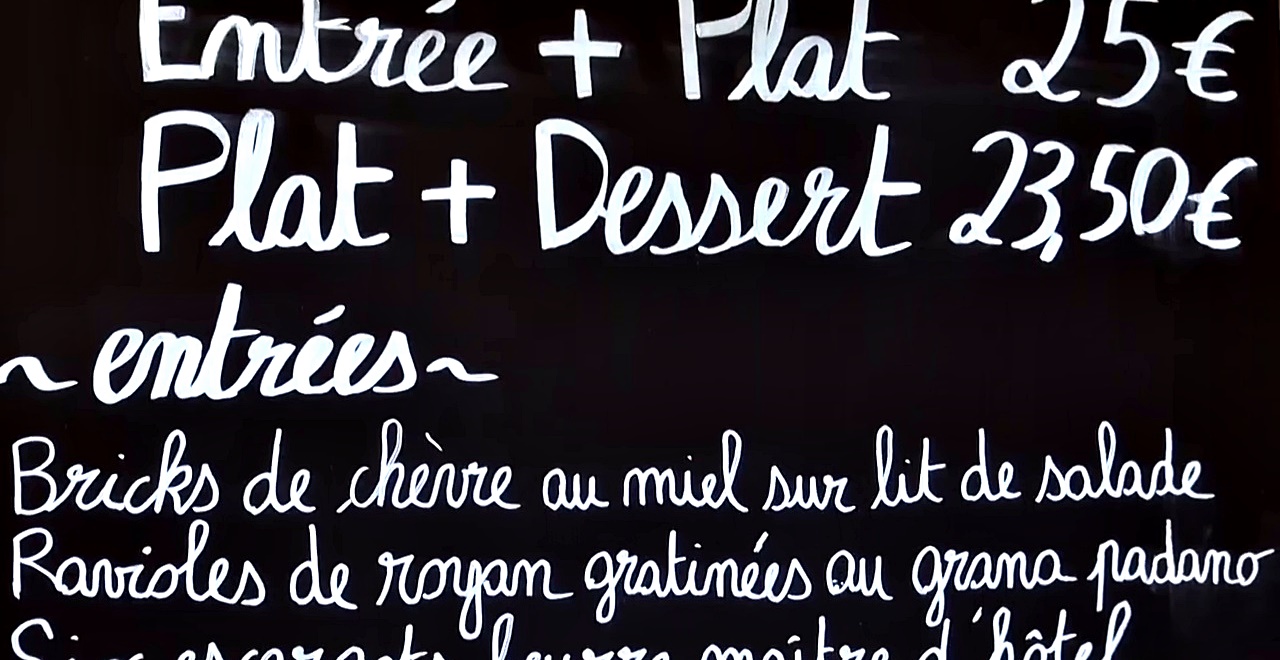 Entrée + Plat 25€
Plat + Dessert 23,50€
~ entrées ~
Bricks de chèvre au miel sur lit de salade
Ravioles de royan gratinées au grana padano
Six escargots beurre maître d'hôtel